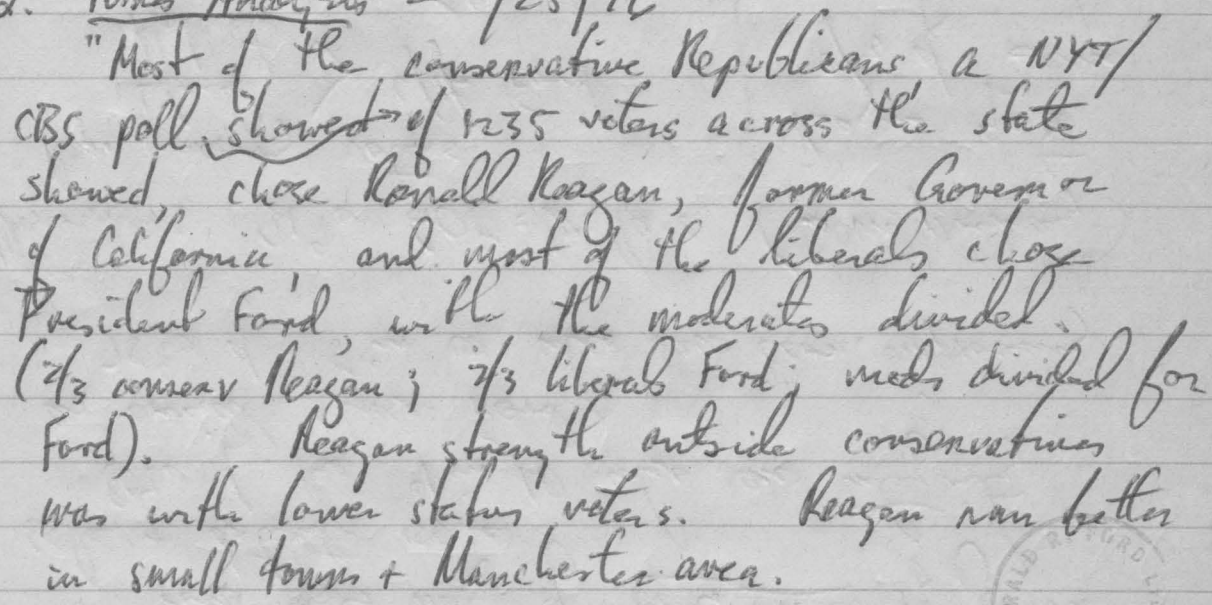 2. Times Analysis - /25/76
"Most of the conservative Republicans, a NYT/
CBS poll showed of 1235 voters across the state
showed, chose Ronald Reagan, former Governor
of California, and most of the liberals chose
President Ford, with the moderates divided.
(2/3 conserv Reagan; 2/3 liberals Ford; mods divided for
Ford). Reagan strength outside conservatives
was with lower status voters. Reagan ran better
in small towns + Manchester area.
RALD R FORD L